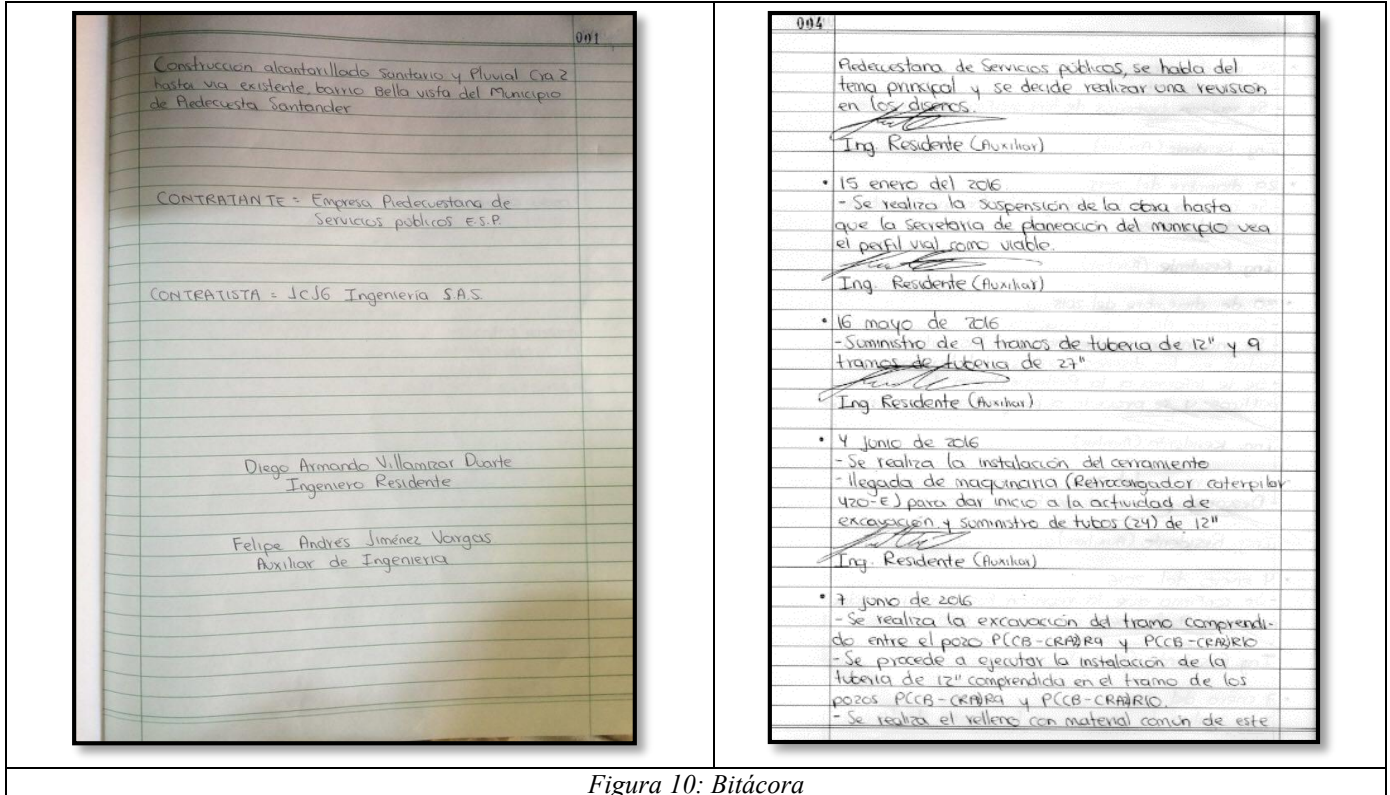 001
Construcción alcantarillado Sanitario y Pluvial Cra 2
hasta via existente, barrio Bella vista del Municipio
de Piedecuesta Santander
CONTRATANTE = Empresa Piedecuestana de
Servicios públicos E.S.P.
CONTRATISTA = JCJG Ingeniería S.A.S.
Diego Armando Villamizar Duarte
Ingeniero Residente
Felipe Andres Jiménez Vargas
Auxiliar de Ingenieria
004
Piedecuestana de Servicios públicos, se habla del
tema principal y se decide realizar una revisión
en los diseños.
Ing. Residente (Auxiliar)
• 15 enero del 2016
- Se realiza la suspensión de la obra hasta
que la secretaria de planeación del municipio vea
el perfil vial como viable.
Ing. Residente (Auxiliar)
• 16 mayo de 2016
- Suministro de 9 tramos de tuberia de 12" y 9
tramos de tuberia de 27"
Ing. Residente (Auxiliar)
• 4 junio de 2016
- Se realiza la instalación del cerramiento
- llegada de maquinaria (Retrocargador caterpilar
420-E) para dar inicio a la actividad de
excavación y suministro de tubos (24) de 12"
Ing. Residente (Auxiliar)
• 7 junio de 2016
- Se realiza la excavación del tramo comprendi-
do entre el pozo P(CB-CRA2)R9 y P(CB-CRA2)R10
- Se procede a ejecutar la instalación de la
tuberia de 12" comprendida en el tramo de los
pozos P(CB-CRA2)R9 y P(CB-CRA2)R10.
- Se realiza el relleno con material común de este
Figura 10: Bitácora